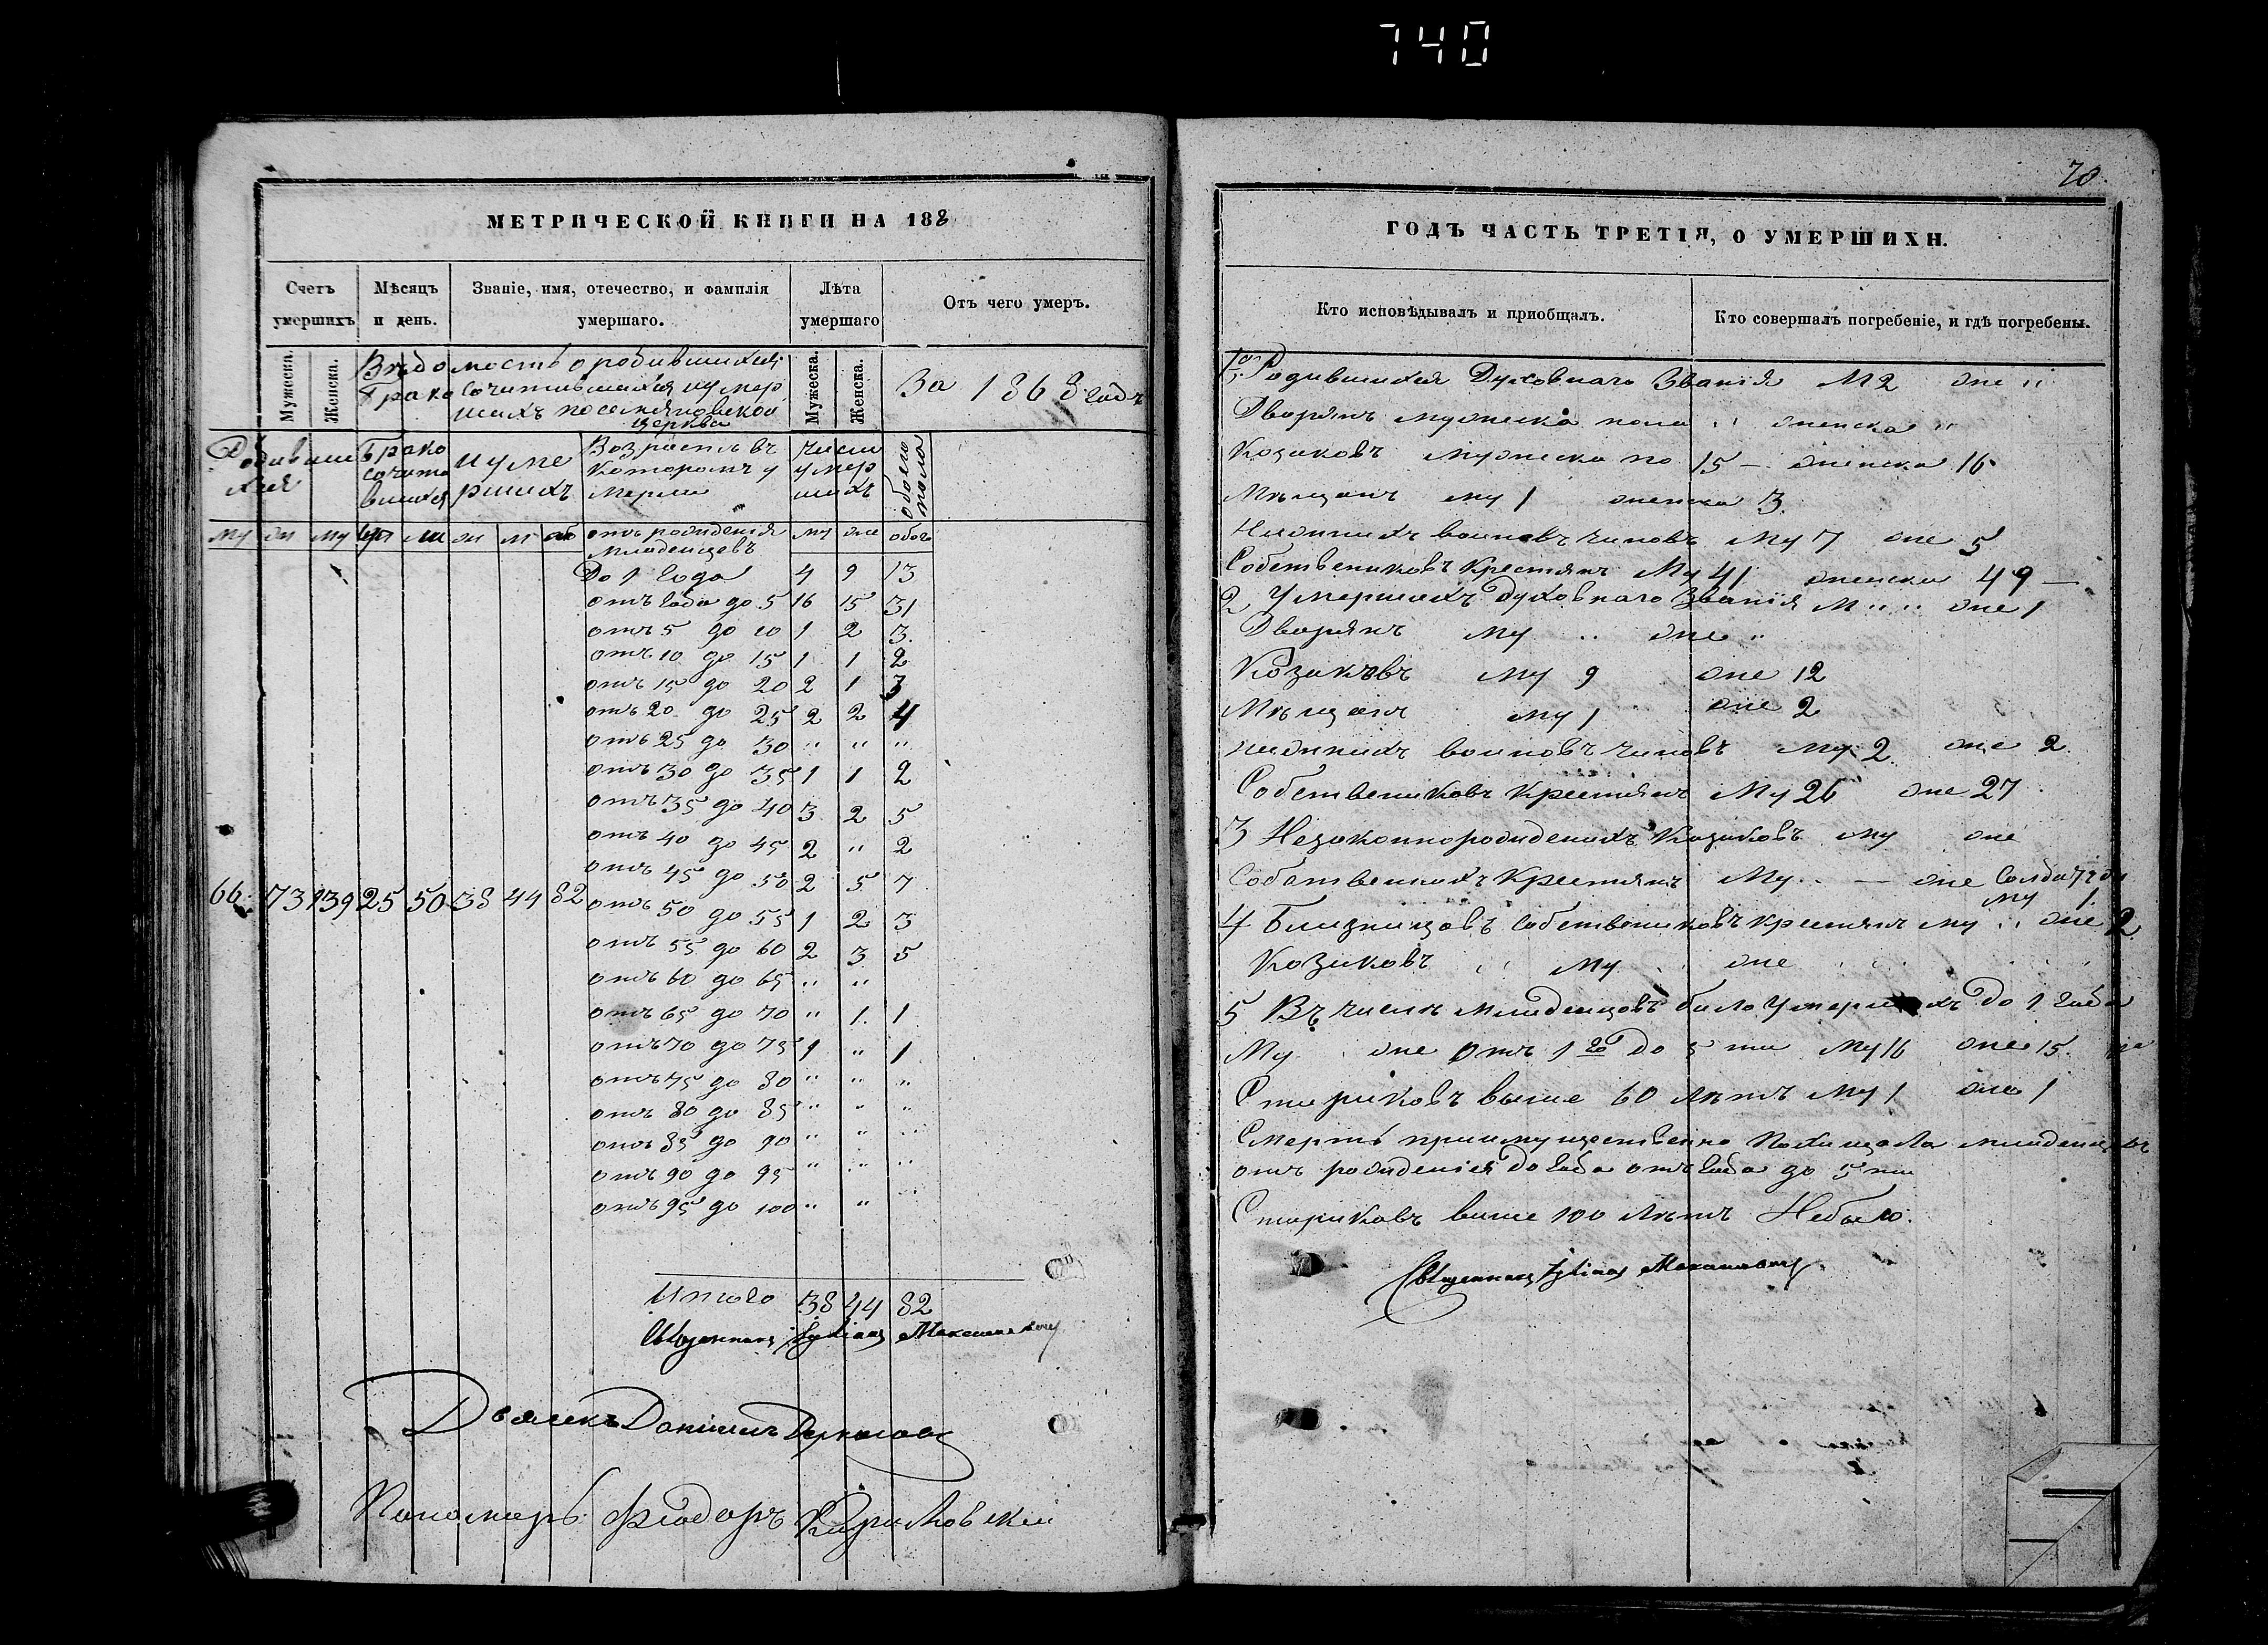 740
МЕТРИЧЕСКОЙ КНИГИ НА 188
Счетъ умершихъ
Мѣсяцъ и день.
Званіе, имя, отечество, и фамилія умершаго.
Лѣта умершаго
Отъ чего умеръ.
Мужеска.
Женска.
Вѣдомость о родившихся
Бракосочитавшихся и умер
шихъ по
церкви
Мужеска.
Женска.
За 1868 годъ
Родивши
хся
Брако
сочита
вшихся
и уме
ршихъ
Возрастъ въ
которомъ у
мерли
число
умер
шихъ
обоего
пола
му же му же об
отъ рожденія
младенцевъ
му же обого
До 1 года 4 9 13
отъ года до 5 16 15 31
отъ 5 до 10 1 2 3.
отъ 10 до 15 1 1 2
отъ 15 до 20 2 1 3
отъ 20 до 25 2 2 4
отъ 25 до 30 " " "
отъ 30 до 35 1 1 2
отъ 35 до 40 3 2 5
отъ 40 до 45 2 " 2
отъ 45 до 50 2 5 7
66 73 139 25 50 38 44 82
отъ 50 до 55 1 2 3
отъ 55 до 60 2 3 5
отъ 60 до 65 " "
отъ 65 до 70 " 1. 1.
отъ 70 до 75 1 " 1
отъ 75 до 80 " " "
отъ 80 до 85 " " "
отъ 85 до 90 " " "
отъ 90 до 95 " " "
отъ 95 до 100 " " "
Итого 38 44 82
Священникъ
Дьячекъ Даніилъ
Пономарь Фіодоръ
70.
ГОДЪ ЧАСТЬ ТРЕТІЯ, О УМЕРШИХЪ.
Кто исповѣдывалъ и приобщалъ.
Кто совершалъ погребеніе, и гдѣ погребены.
Родившихся Духовнаго Званія М 2 же "
Дворянъ мужеска пола " женска "
Козаковъ мужеска по 15 – женска 16.
Мѣщанъ му 1 женска 3
Нижнихъ воиновъ чиновъ Му 7 же 5
Собствениковъ Крестянъ Му 41 женска 49 –
2 Умершихъ Духовнаго Званія М " " же 1
Дворянъ му " же "
Козаковъ му 9 же 12
Мѣщанъ му 1 же 2
нижнихъ воиновъ чиновъ му 2 же 2.
Собствениковъ крестянъ Му 26 же 27
3 Незаконнорожденихъ Козаковъ му же
Собственихъ Крестянъ Му – же
му 1.
4 Близнецовъ собствениковъ крестянъ му " же 2
Козаковъ " му же
5 Въ числѣ младенцовъ било Умершихъ До 1 года
Му же отъ 1 го до 5 ти Му 16 же 15.
Стариковъ выше 60 лѣтъ му 1 же 1
Смерть приимущественно Похищала младенцевъ
отъ рожденія до года отъ года до 5 ти
Стариковъ више 100 лѣтъ Небыло.
Священникъ